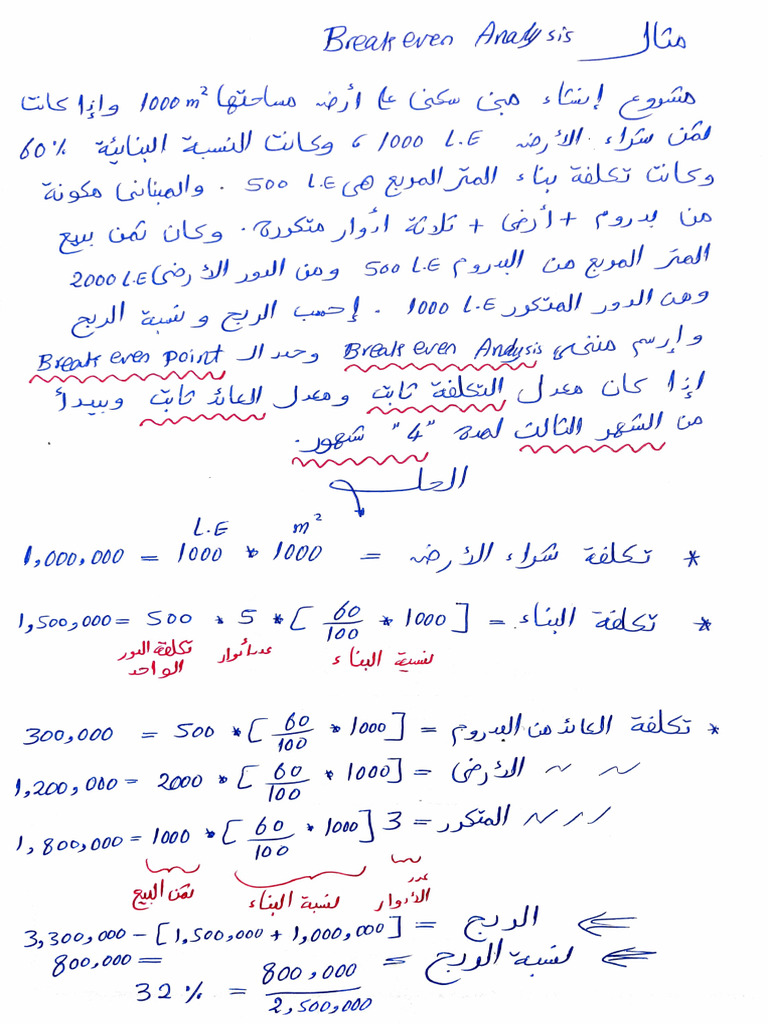 مثال Break even Analysis
مشروع إنشاء مبنى سكنى على أرض مساحتها 1000 m² وإذا كانت
ثمن شراء الأرض 1000 L.E ، وكانت النسبة البنائية 60%
وكانت تكلفة بناء المتر المربع هى 500 L.E . والمبانى مكونة
من بدروم + أرضى + ثلاثة أدوار متكررة. وكان ثمن بيع
المتر المربع من البدروم 500 L.E ومن الدور الأرضى 2000 L.E
وهن الدور المتكرر 1000 L.E . إحسب الربح ونسبة الربح
وإرسم منحنى Break even Analysis وحدد الـ Break even point
إذا كان معدل التكلفة ثابت ومعدل العائد ثابت ويبدأ
من الشهر الثالث لمدة "4" شهور.
الحل
L.E m²
* تكلفة شراء الأرض = 1000 * 1000 = 1,000,000
* تكلفة البناء = [1000 * 60/100] * 5 * 500 = 1,500,000
نسبة البناء عدد أدوار تكلفة الدور الواحد
* تكلفة العائد من البدروم = [1000 * 60/100] * 500 = 300,000
~ ~ الأرضى = [1000 * 60/100] * 2000 = 1,200,000
~ ~ ~ المتكرر = 3 [1000 * 60/100] * 1000 = 1,800,000
عدد الأدوار نسبة البناء ثمن البيع
⇐ الربح = 3,300,000 - [1,500,000 + 1,000,000]
= 800,000
⇐ نسبة الربح = 800,000 / 2,500,000 = 32 %